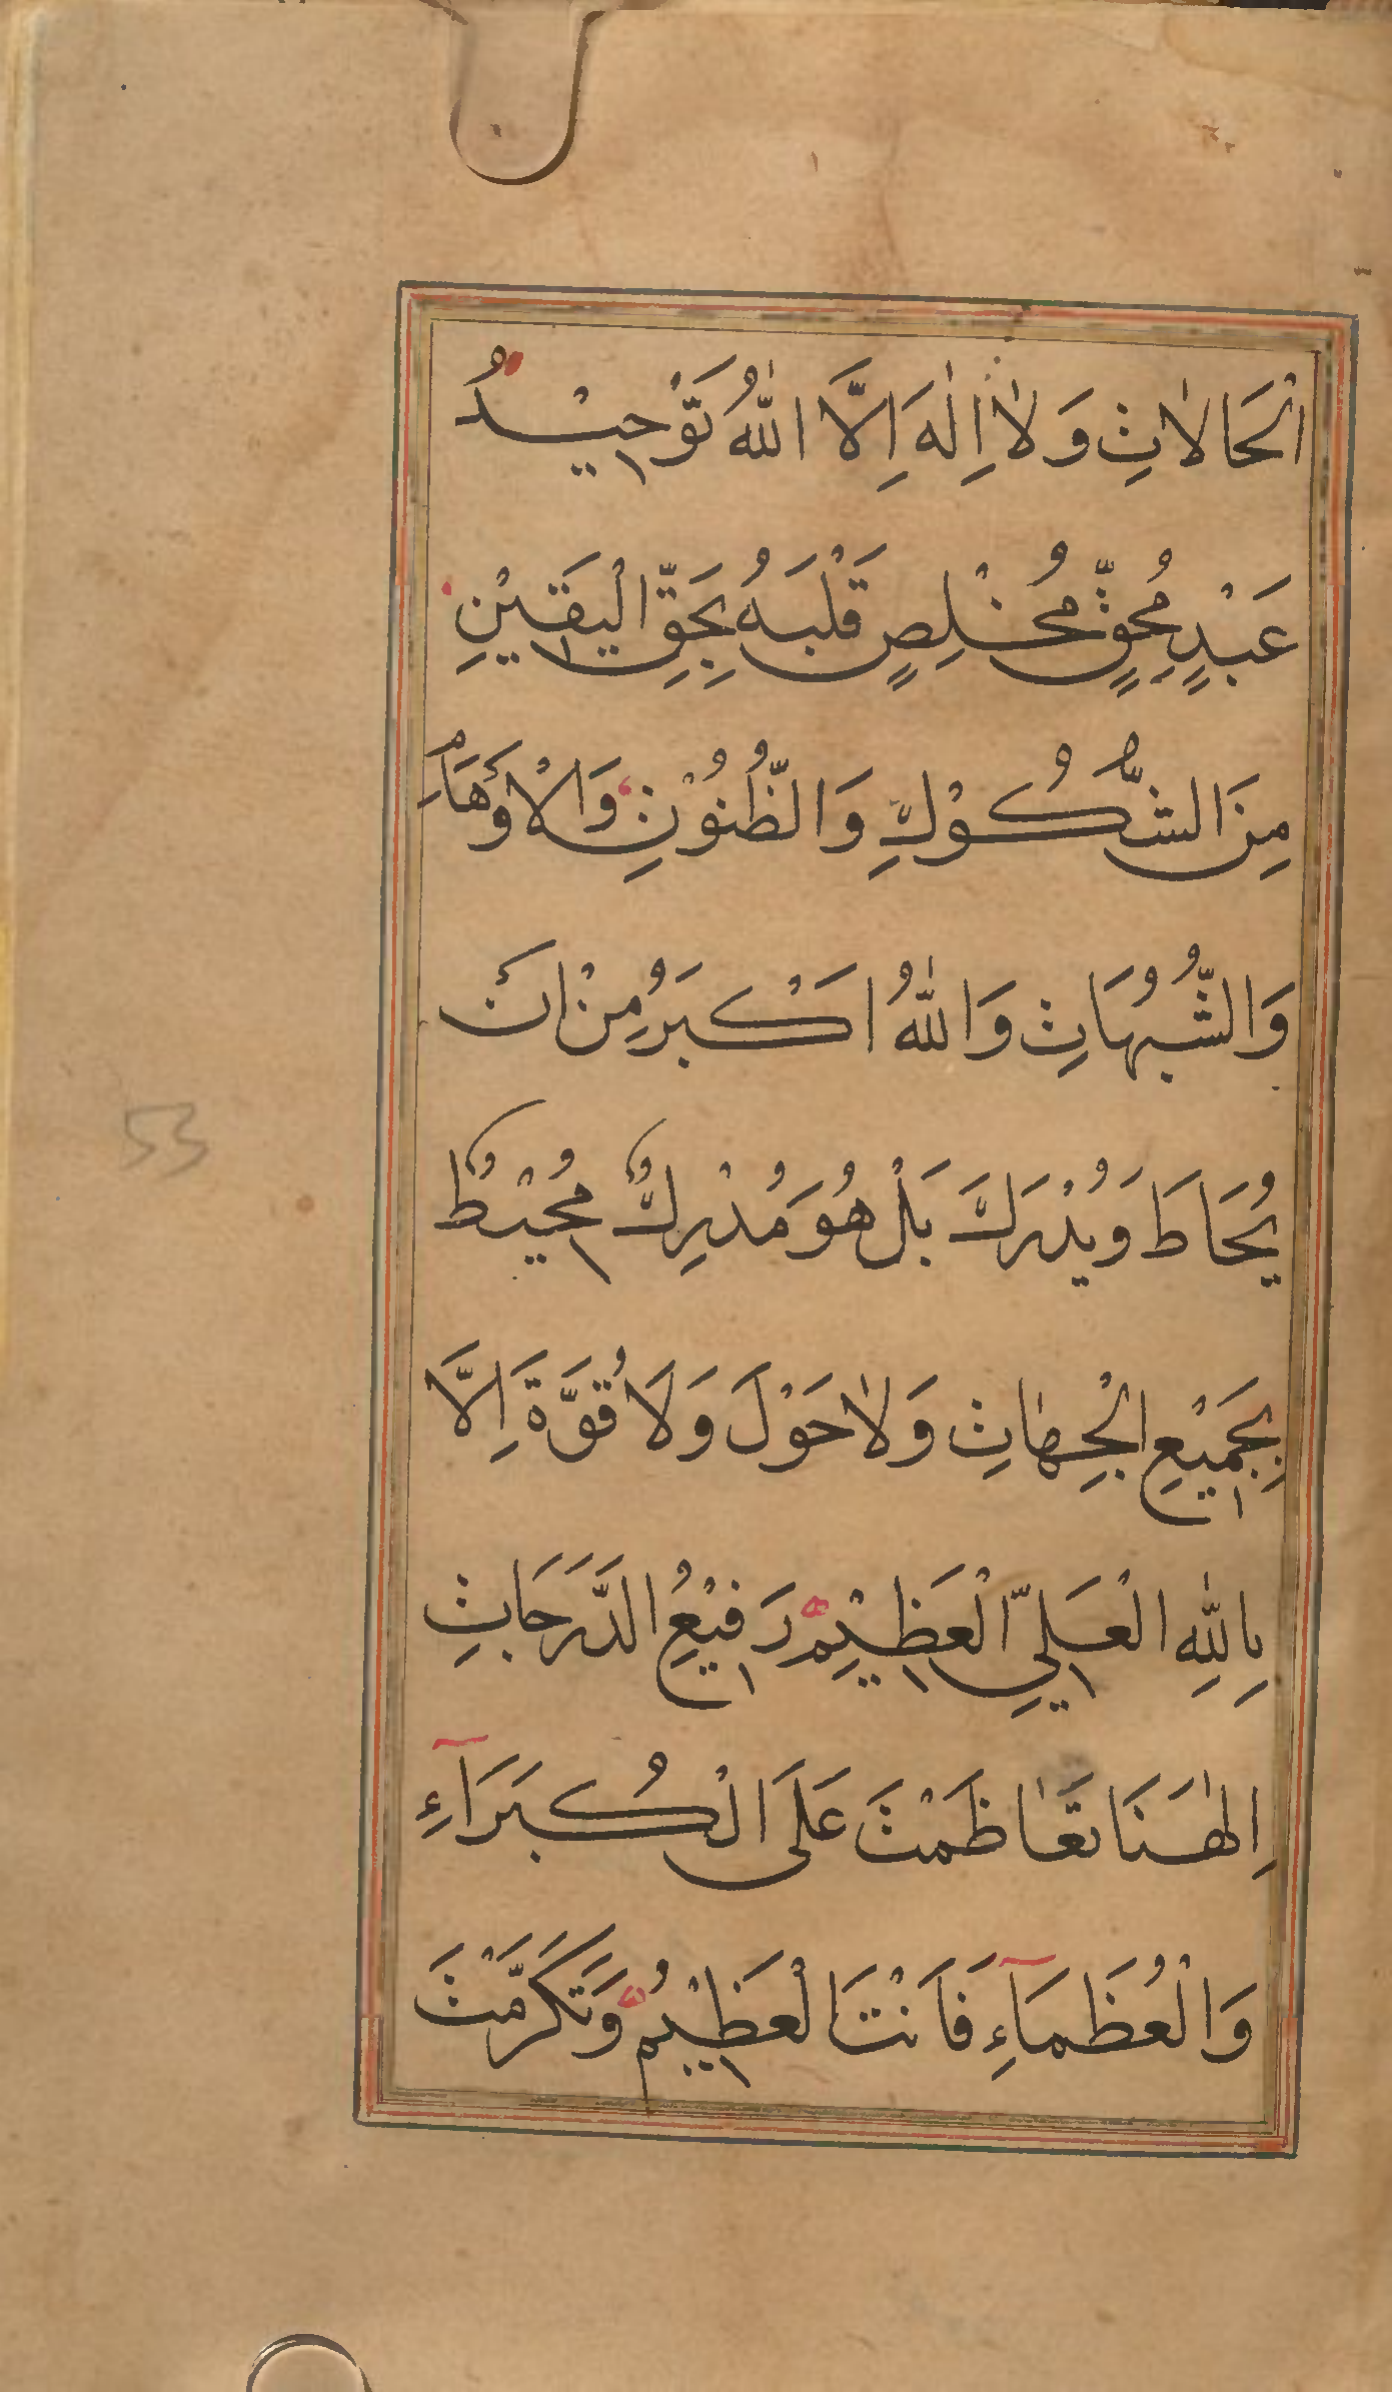 الْحَالَاتِ وَلَا اِلٰهَ اِلَّا اللّٰهُ تَوْحِيْدُ
عَبْدٍ مُحِقٍّ مُخْلِصٍ قَلْبَهُ بِحَقِّ الْيَقِيْنِ
مِنَ الشُّكُوْكِ وَالظُّنُوْنِ وَالْاَوْهَامِ
وَالشُّبُهَاتِ وَاللّٰهُ اَكْبَرُ مِنْ اَنْ
يُحَاطَ وَيُدْرَكَ بَلْ هُوَ مُدْرِكٌ مُحِيْطٌ
بِجَمِيْعِ الْجِهَاتِ وَلَا حَوْلَ وَلَا قُوَّةَ اِلَّا
بِاللّٰهِ الْعَلِيِّ الْعَظِيْمِ رَفِيْعِ الدَّرَجَاتِ
اِلٰهَنَا تَعَاظَمْتَ عَلَى الْكُبَرَآءِ
وَالْعُظَمَآءِ فَاَنْتَ الْعَظِيْمُ وَتَكَرَّمْتَ
53